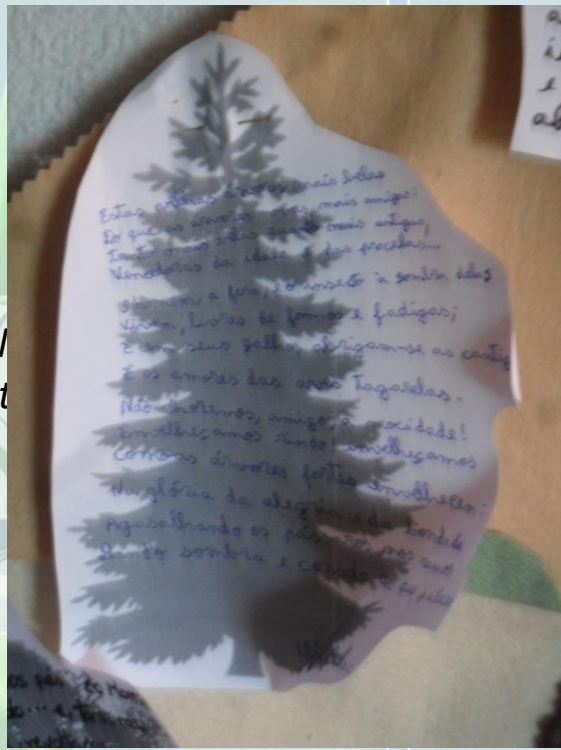 Estas velhas árvores mais belas
Do que as árvores novas, mais amigas:
Tanto mais belas quanto mais antigas,
Vencedoras da idade e das procelas...
O homem a fera, e o inseto à sombra delas
Vivem, livres de fomes e fadigas;
E em seus galhos abrigam-se as cantig
E os amores das aves tagarelas.
Não choremos, amigo, a mocidade!
Envelheçamos rindo! envelheçamos
Como as árvores fortes envelhecem:
Na glória da alegria e da bondade
Agasalhando os pássaros nos
Dando sombra e